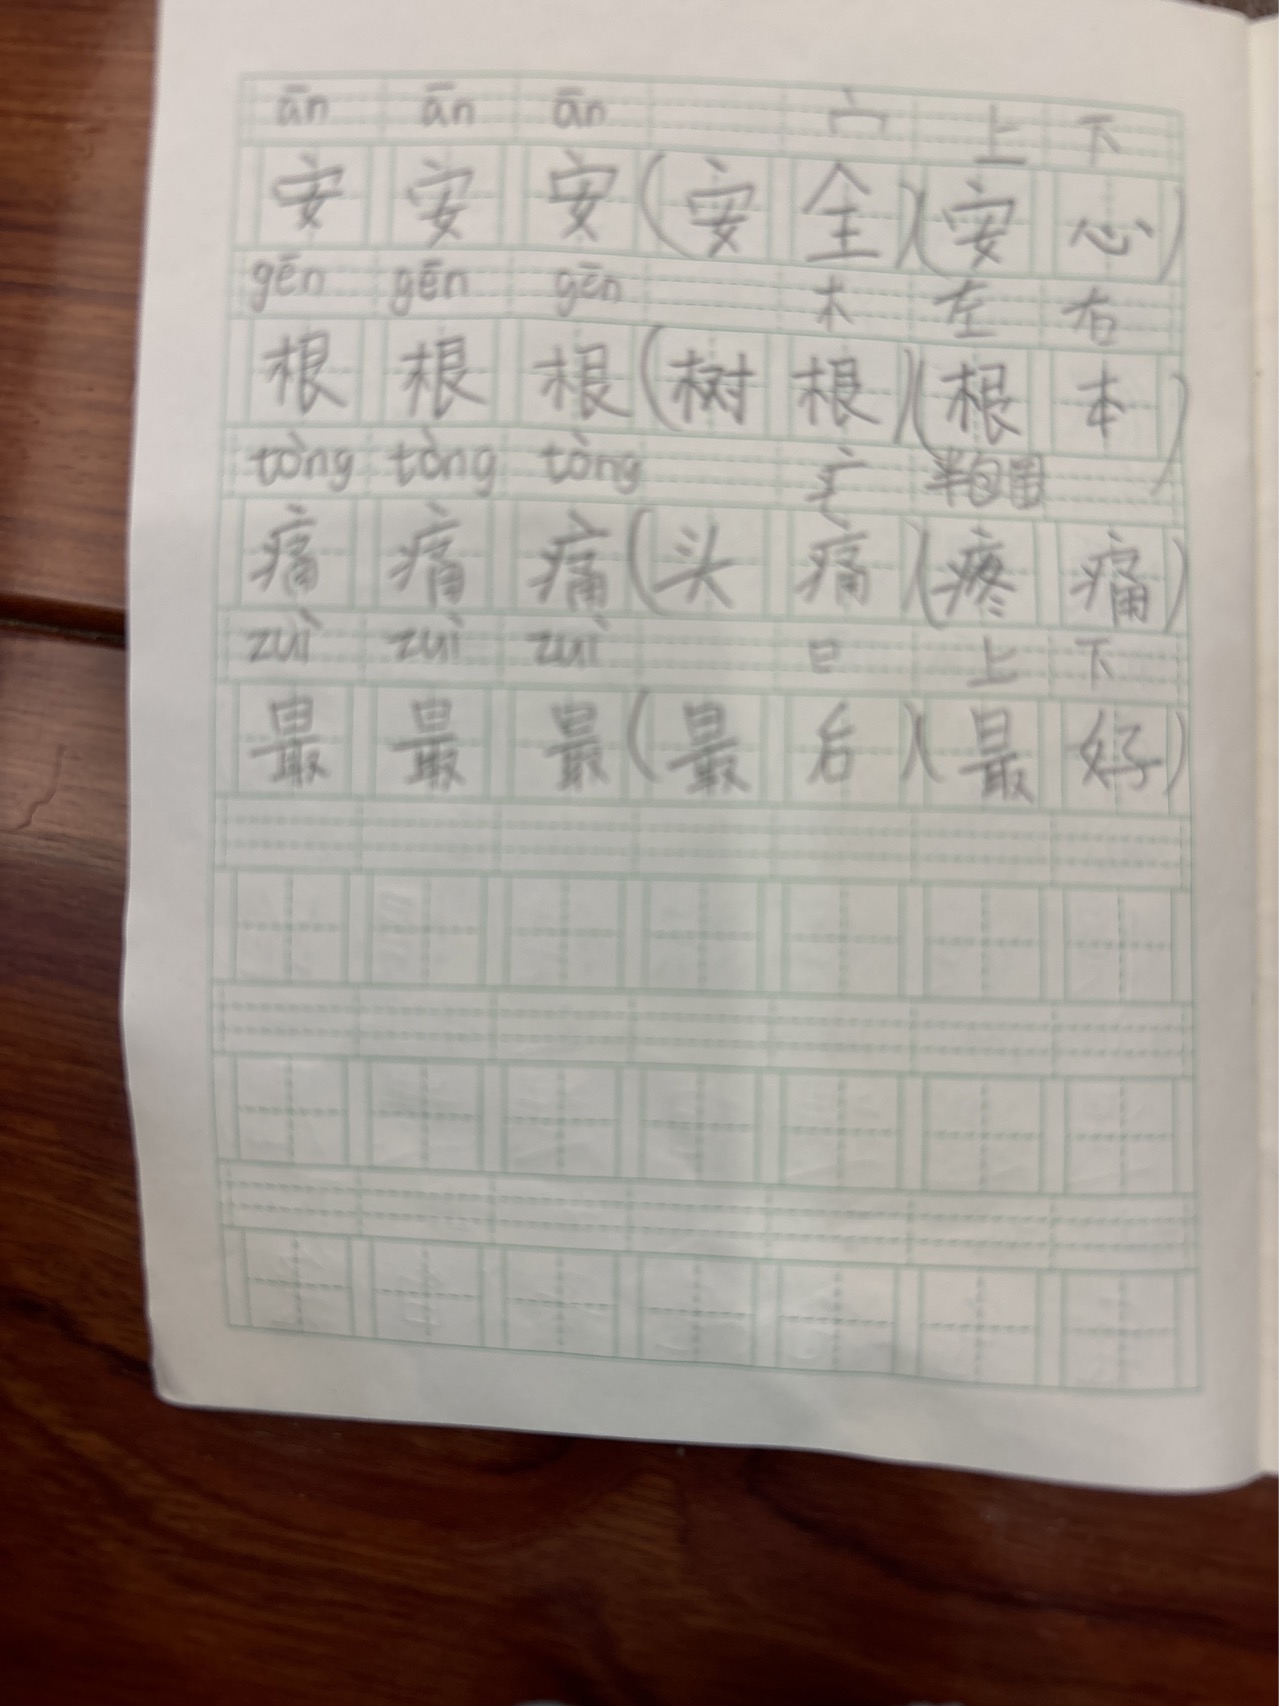 ān ān ān 宀 上 下
安 安 安 (安 全)(安 心)
gēn gēn gēn 木 左 右
根 根 根 (树 根)(根 本)
tòng tòng tòng 疒 半包围
痛 痛 痛 (头 痛)(疼 痛)
zuì zuì zuì 曰 上 下
最 最 最 (最 后)(最 好)